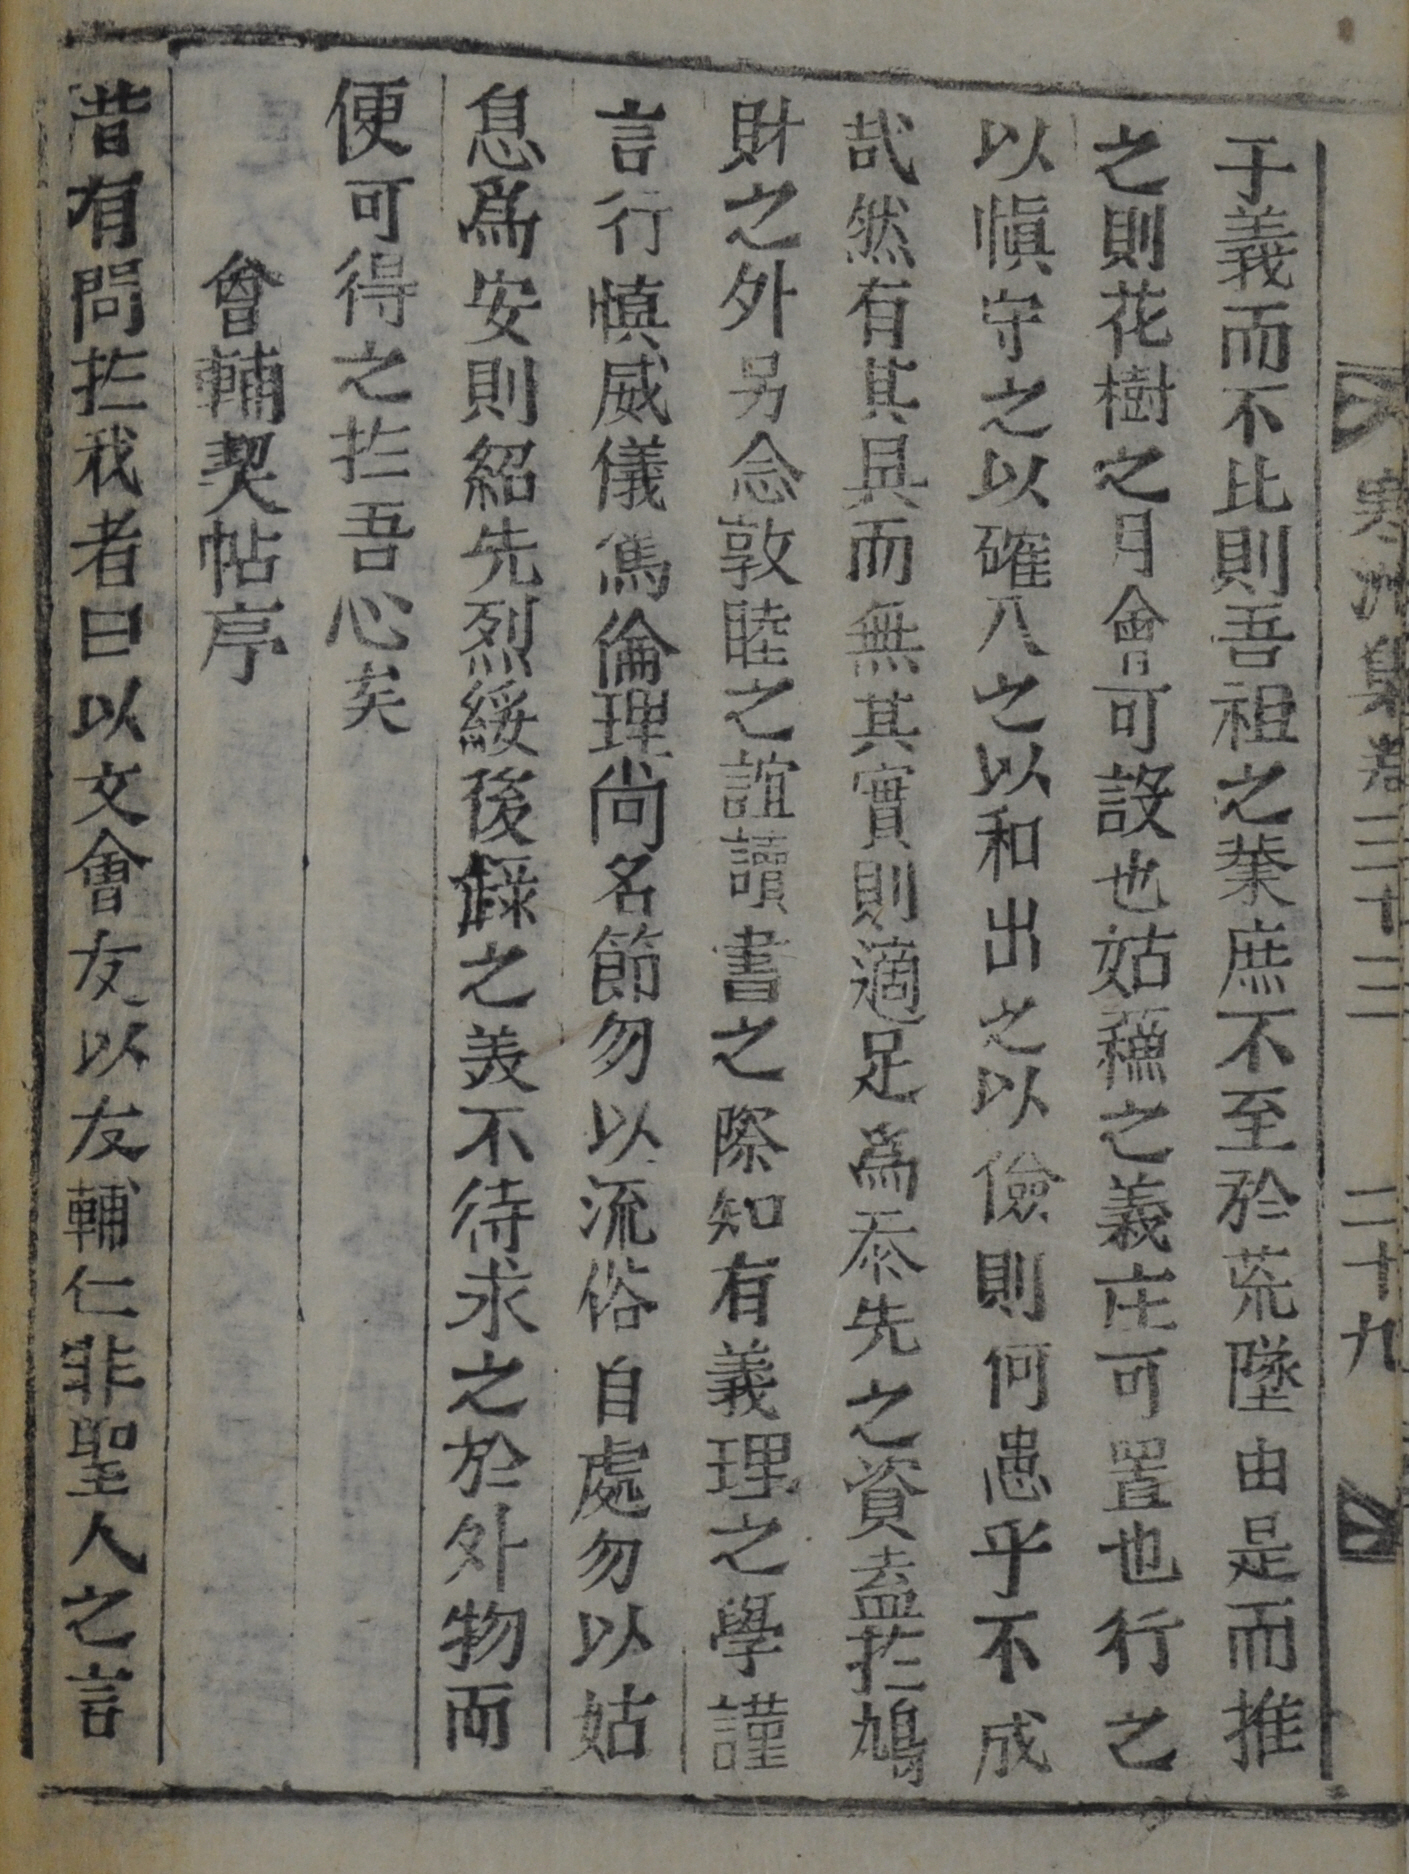 寒洲集卷三十三 二十九
于義而不比則吾祖之業庶不至於荒墜由是而推
之則花樹之月會可設也姑蘓之義庄可置也行之
以愼守之以確入之以和出之以儉則何患乎不成
哉然有其具而無其實則適足爲忝先之資盍於鳩
財之外另念敦睦之誼讀書之際知有義理之學謹
言行愼威儀篤倫理尚名節勿以流俗自處勿以姑
息爲安則紹先烈綏後祿之美不待求之於外物而
便可得之於吾心矣
會輔契帖序
昔有問於我者曰以文會友以友輔仁非聖人之言